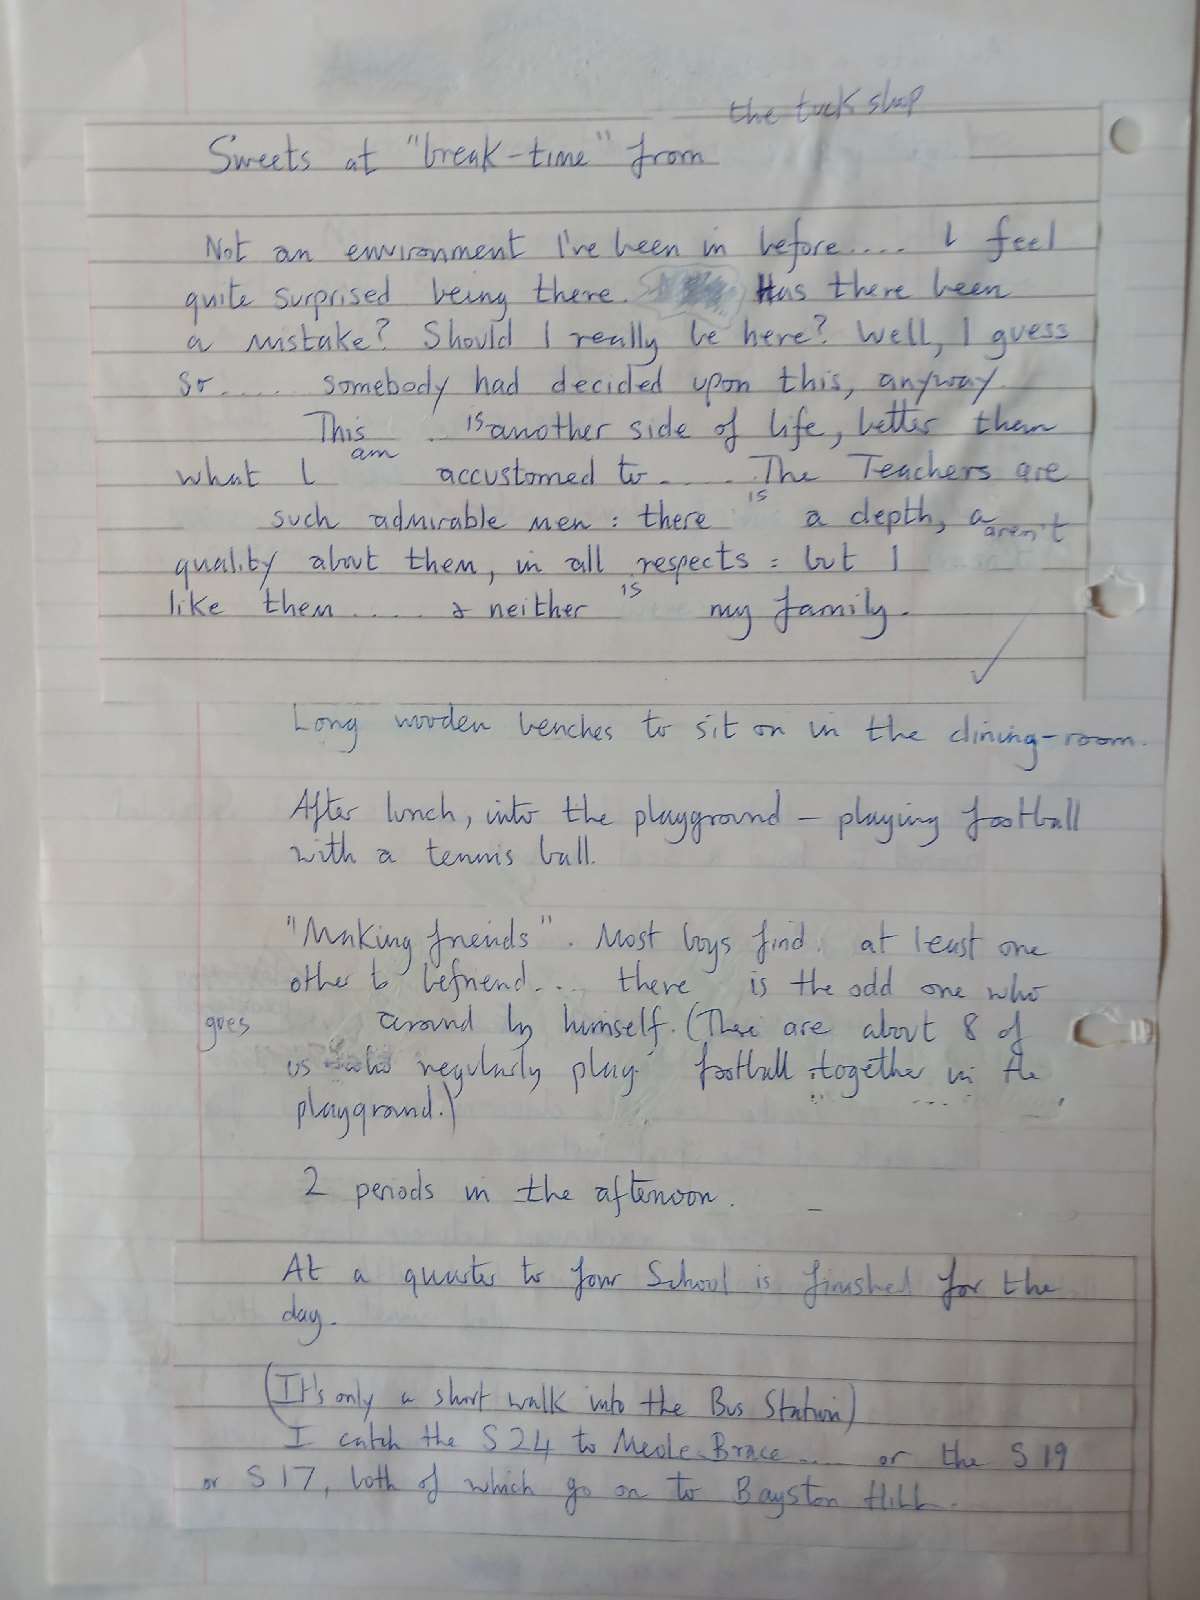 the tuck shop
Sweets at "break-time" from
Not an environment I've been in before.... I feel
quite surprised being there. Has there been
a mistake? Should I really be here? Well, I guess
so..... somebody had decided upon this, anyway.
This is another side of life, better them
what I am accustomed to..... The Teachers are
such admirable men : there is a depth, a
quality about them, in all respects : but I aren't
like them.... & neither is my family.
Long wooden benches to sit on in the dining-room.
After lunch, into the playground – playing football
with a tennis ball.
"Making friends". Most boys find at least one
other to befriend.... there is the odd one who
goes around by himself. (There are about 8 of
us who regularly play football together in the
playground.)
2 periods in the afternoon.
At a quarter to four School is finished for the
day.
(It's only a short walk into the Bus Station)
I catch the S24 to Meole Brace.... or the S19
or S17, both of which go on to Bayston Hill.